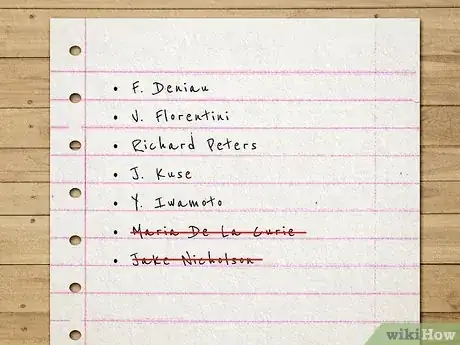 • F. Deniau
• V. Florentini
• Richard Peters
• J. Kuse
• Y. Iwamoto
• Maria De La Curie
• Jake Nicholson
wikiHow